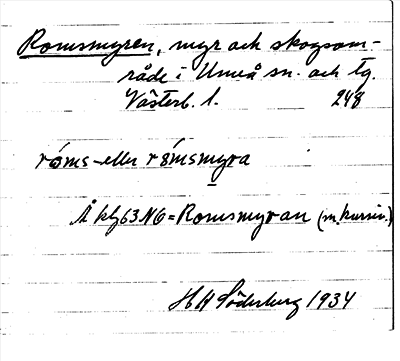 Romsmyren, myr och skogsom-
råde i Umeå sn. och tg.
Västerb. l. 248
róms- eller rómsmyra
Å kbl 63 NG = Romsmyran (m. kursiv.)
H H Söderberg 1934